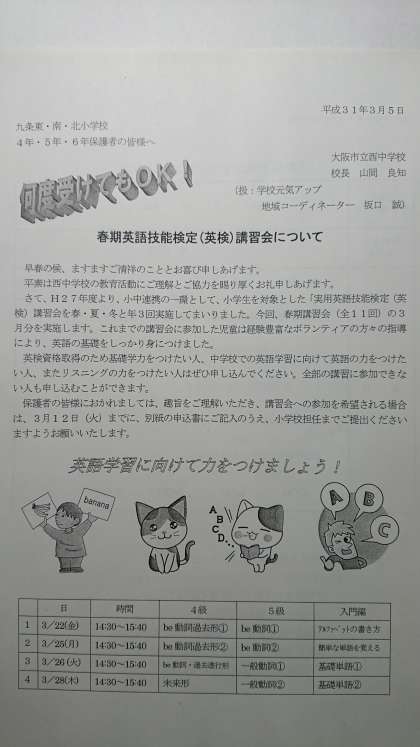 平成31年3月5日
九条東・南・北小学校
4年・5年・6年保護者の皆様へ
大阪市立西中学校
校長 山岡 良知
(扱:学校元気アップ
地域コーディネーター 坂口 誠)
何度受けてもOK!
春期英語技能検定(英検)講習会について
早春の侯、ますますご清祥のこととお喜び申しあげます。
平素は西中学校の教育活動にご理解とご協力を賜り厚くお礼申しあげます。
さて、H27年度より、小中連携の一環として、小学生を対象とした「実用英語技能検定(英
検)講習会を春・夏・冬と年3回実施してまいりました。今回、春期講習会(全11回)の3
月分を実施します。これまでの講習会に参加した児童は経験豊富なボランティアの方々の指導
により、英語の基礎をしっかり身につけました。
英検資格取得のため基礎学力をつけたい人、中学校での英語学習に向けて英語の力をつけた
い人、またリスニングの力をつけたい人はぜひ申し込んでください。全部の講習に参加できな
い人も申し込むことができます。
保護者の皆様におかれましては、趣旨をご理解いただき、講習会への参加を希望される場合
は、3月12日(火)までに、別紙の申込書にご記入のうえ、小学校担任までご提出ください
ますようお願いいたします。
英語学習に向けて力をつけましょう!
banana
A B C D...
A B C
日 時間 4級 5級 入門編
1 3/22(金) 14:30~15:40 be動詞過去形① be動詞① アルファベットの書き方
2 3/25(月) 14:30~15:40 be動詞過去形② be動詞② 簡単な単語を覚える
3 3/26(火) 14:30~15:40 be動詞・過去進行形 一般動詞① 基礎単語①
4 3/28(木) 14:30~15:40 未来形 一般動詞② 基礎単語②